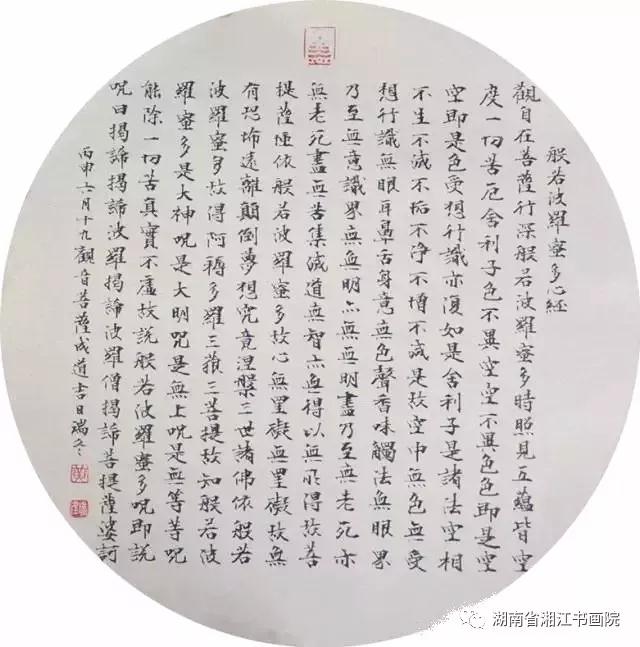 般若波羅蜜多心經
觀自在菩薩行深般若波羅蜜多時照見五蘊皆空
度一切苦厄舍利子色不異空空不異色色即是空
空即是色受想行識亦復如是舍利子是諸法空相
不生不滅不垢不净不增不减是故空中無色無受
想行識無眼耳鼻舌身意無色聲香味觸法無眼界
乃至無意識界無無明亦無無明盡乃至無老死亦
無老死盡無苦集滅道無智亦無得以無所得故菩
提薩埵依般若波羅蜜多故心無罣礙無罣礙故無
有恐怖遠離顛倒夢想究竟涅槃三世諸佛依般若
波羅蜜多故得阿耨多羅三藐三菩提故知般若波
羅蜜多是大神咒是大明咒是無上咒是無等等咒
能除一切苦真實不虛故説般若波羅蜜多咒即説
咒曰揭諦揭諦波羅揭諦波羅僧揭諦菩提薩婆訶
丙申六月十九觀音菩薩成道吉日瑞冬
湖南省湘江书画院